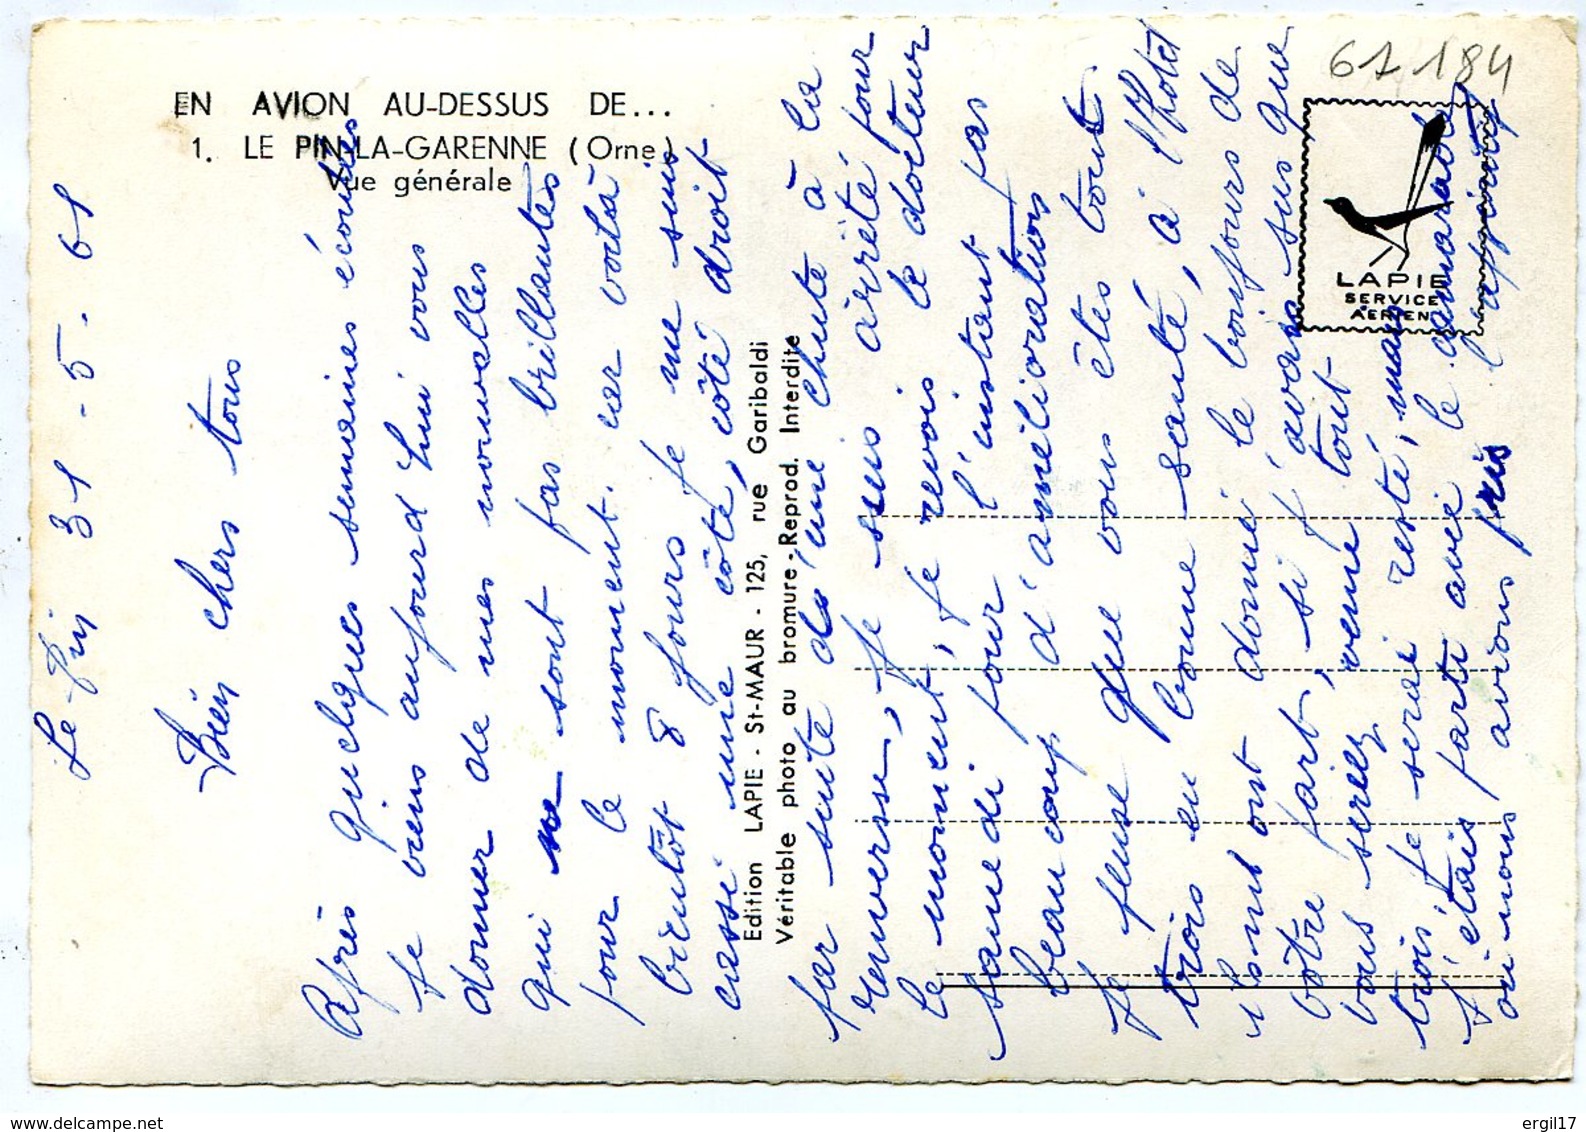 EN AVION AU-DESSUS DE...
1. LE PIN-LA-GARENNE (Orne)
Vue générale
67184
LAPIE
SERVICE
AERIEN
Edition LAPIE - St-MAUR - 125, rue Garibaldi
Véritable photo au bromure - Reprod. Interdite
Le Pin 31 - 5 - 61
Bien chers tous
Après quelques semaines écoulées
je viens aujourd hui vous
donner de mes nouvelles
qui ne sont pas brillantes
pour le moment. car voilà
bientôt 8 jours je me suis
cassé une côte, côté droit
par suite d'une chute à la
renverse, je suis arrêté pour
le moment, je revois le docteur
samedi pour l'instant pas
beaucoup d'améliorations
je pense que vous êtes tout
trois en bonne santé, à l'hotel
ils nt ont donné le bonjours de
vôtre part, si j'avais sus que
vous seriez venu tout
trois, je serai resté, mais
j'étais parti avec le camarade
où nous avions pris l'apéritif
delcampe.net
ergil17